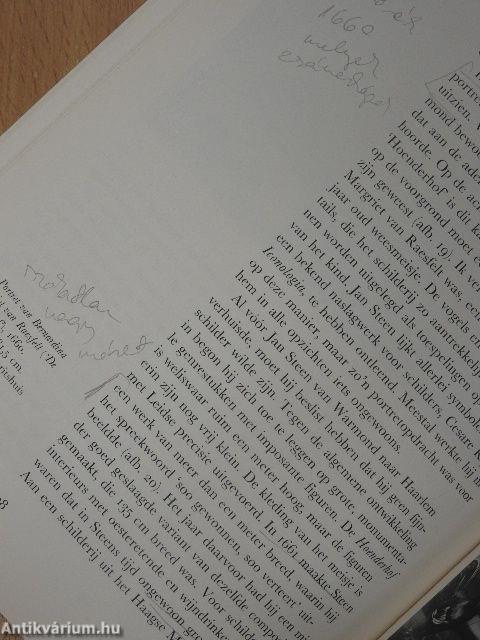 1660
portret
uitzien.
mond bewo
dat aan de ade
hoorde. Op de ac
'Hoenderhof' is dit k
op de voorgrond moet e
zijn geweest (afb. 19). Ik ve
Margriet van Raesfelt was, een
jaar oud weesmeisje. De vogels en
tails, die het schilderij zo aantrekkelij
nen worden uitgelegd als toespelingen op
van het kind. Jan Steen lijkt allerlei symbol
een bekend naslagwerk voor schilders, Cesare R
Iconologia, te hebben ontleend. Meestal werkte hij n
op deze manier, maar zo'n portretopdracht was voor
hem in alle opzichten iets ongewoons.
Al vóór Jan Steen van Warmond naar Haarlem
verhuisde, moet hij beslist hebben dat hij geen fijn-
schilder wilde zijn. Tegen de algemene ontwikkeling
in begon hij zich toe te leggen op grote, monumenta-
le genrestukken met imposante figuren. De Hoenderhof
is weliswaar ruim een meter hoog, maar de figuren
erin zijn nog vrij klein. De kleding van het meisje is
met Leidse precisie uitgevoerd. In 1661 maakte Steen
een werk van meer dan een meter breed, waarin hij
het spreekwoord 'soo gewonnen, soo verteert' uit-
beeldde (afb. 20). Het jaar daarvoor had hij een min-
der goed geslaagde variant van dezelfde compo
gemaakt, die 135 cm breed was. Voor schilde
interieurs met oesteretende en wijndrinke
waren dat in Steens tijd ongewoon gro
Aan een schilderij uit het Haagse M
Portret van Bernardina
it van Raesfelt ('De
, 1660.
,5 cm.
ritshuis
8
Antikvárium.hu